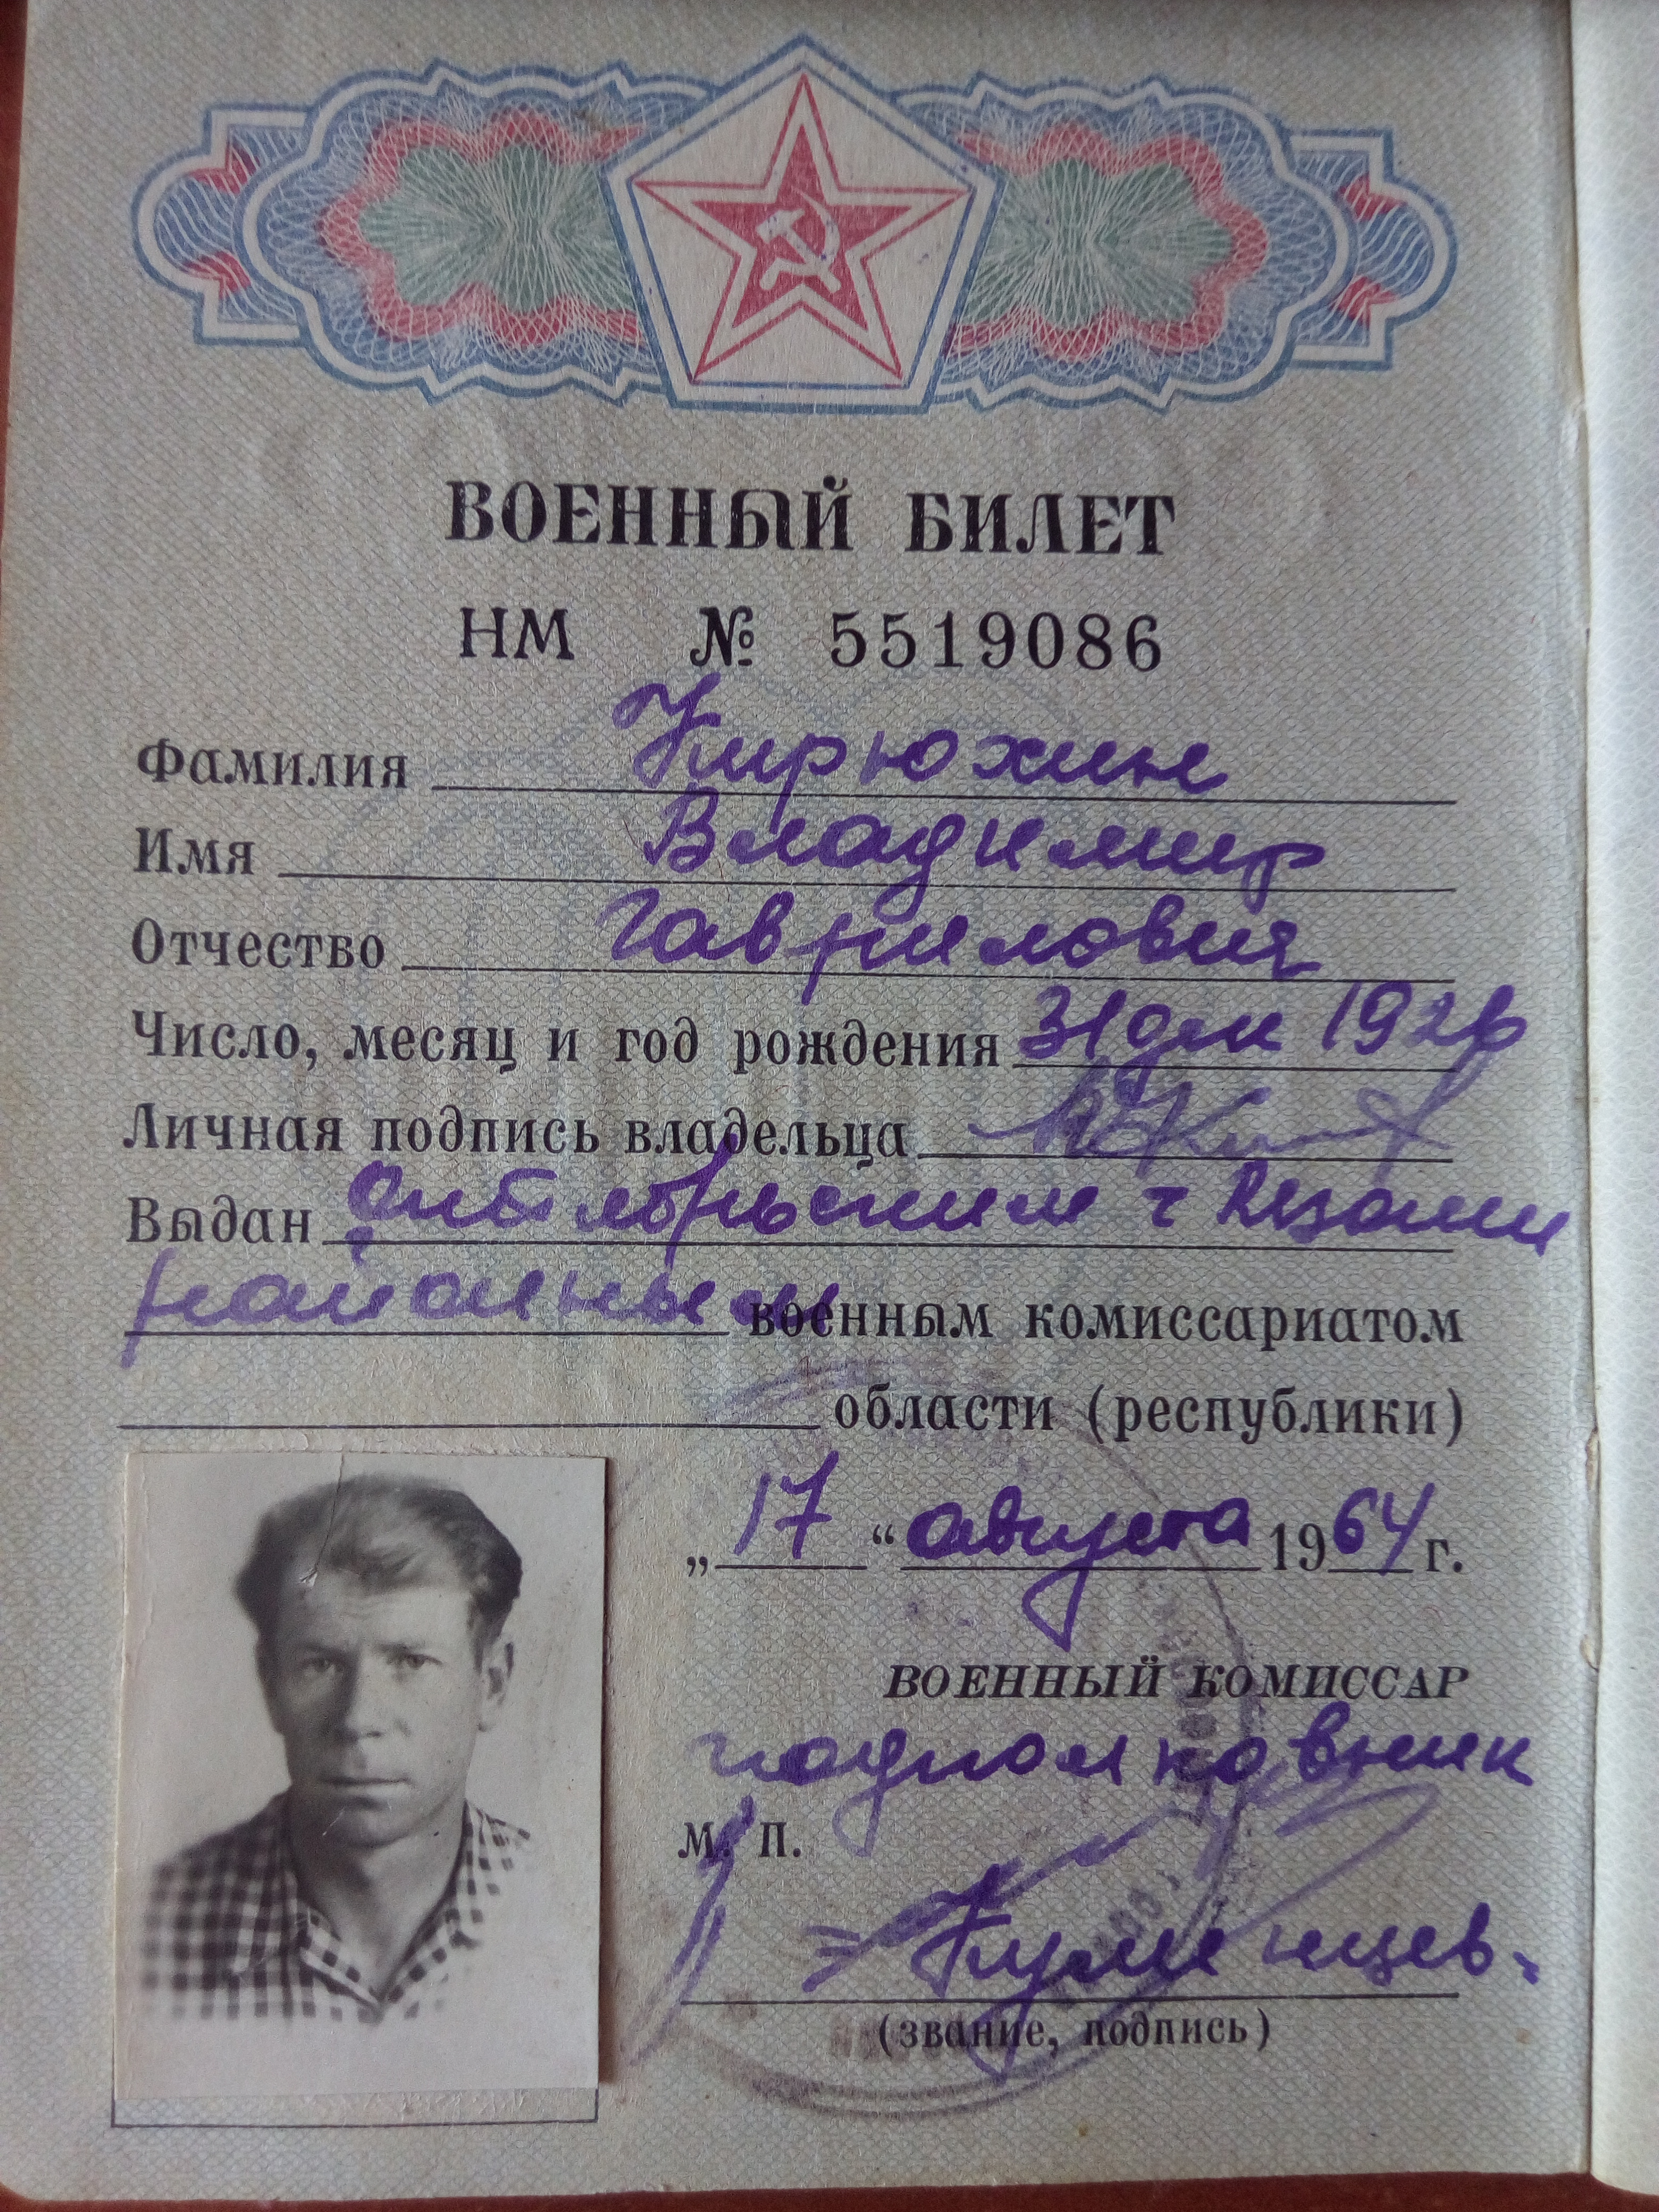 ВОЕННЫЙ БИЛЕТ
НМ № 5519086
Фамилия Кирюхин
Имя Владимир
Отчество Гаврилович
Число, месяц и год рождения 31 дек 1926
Личная подпись владельца
Выдан Октябрьским г Рязани
районным военным комиссариатом
области (республики)
„ 17 “ августа 1964 г.
ВОЕННЫЙ КОМИССАР
подполковник
М. П.
(звание, подпись)